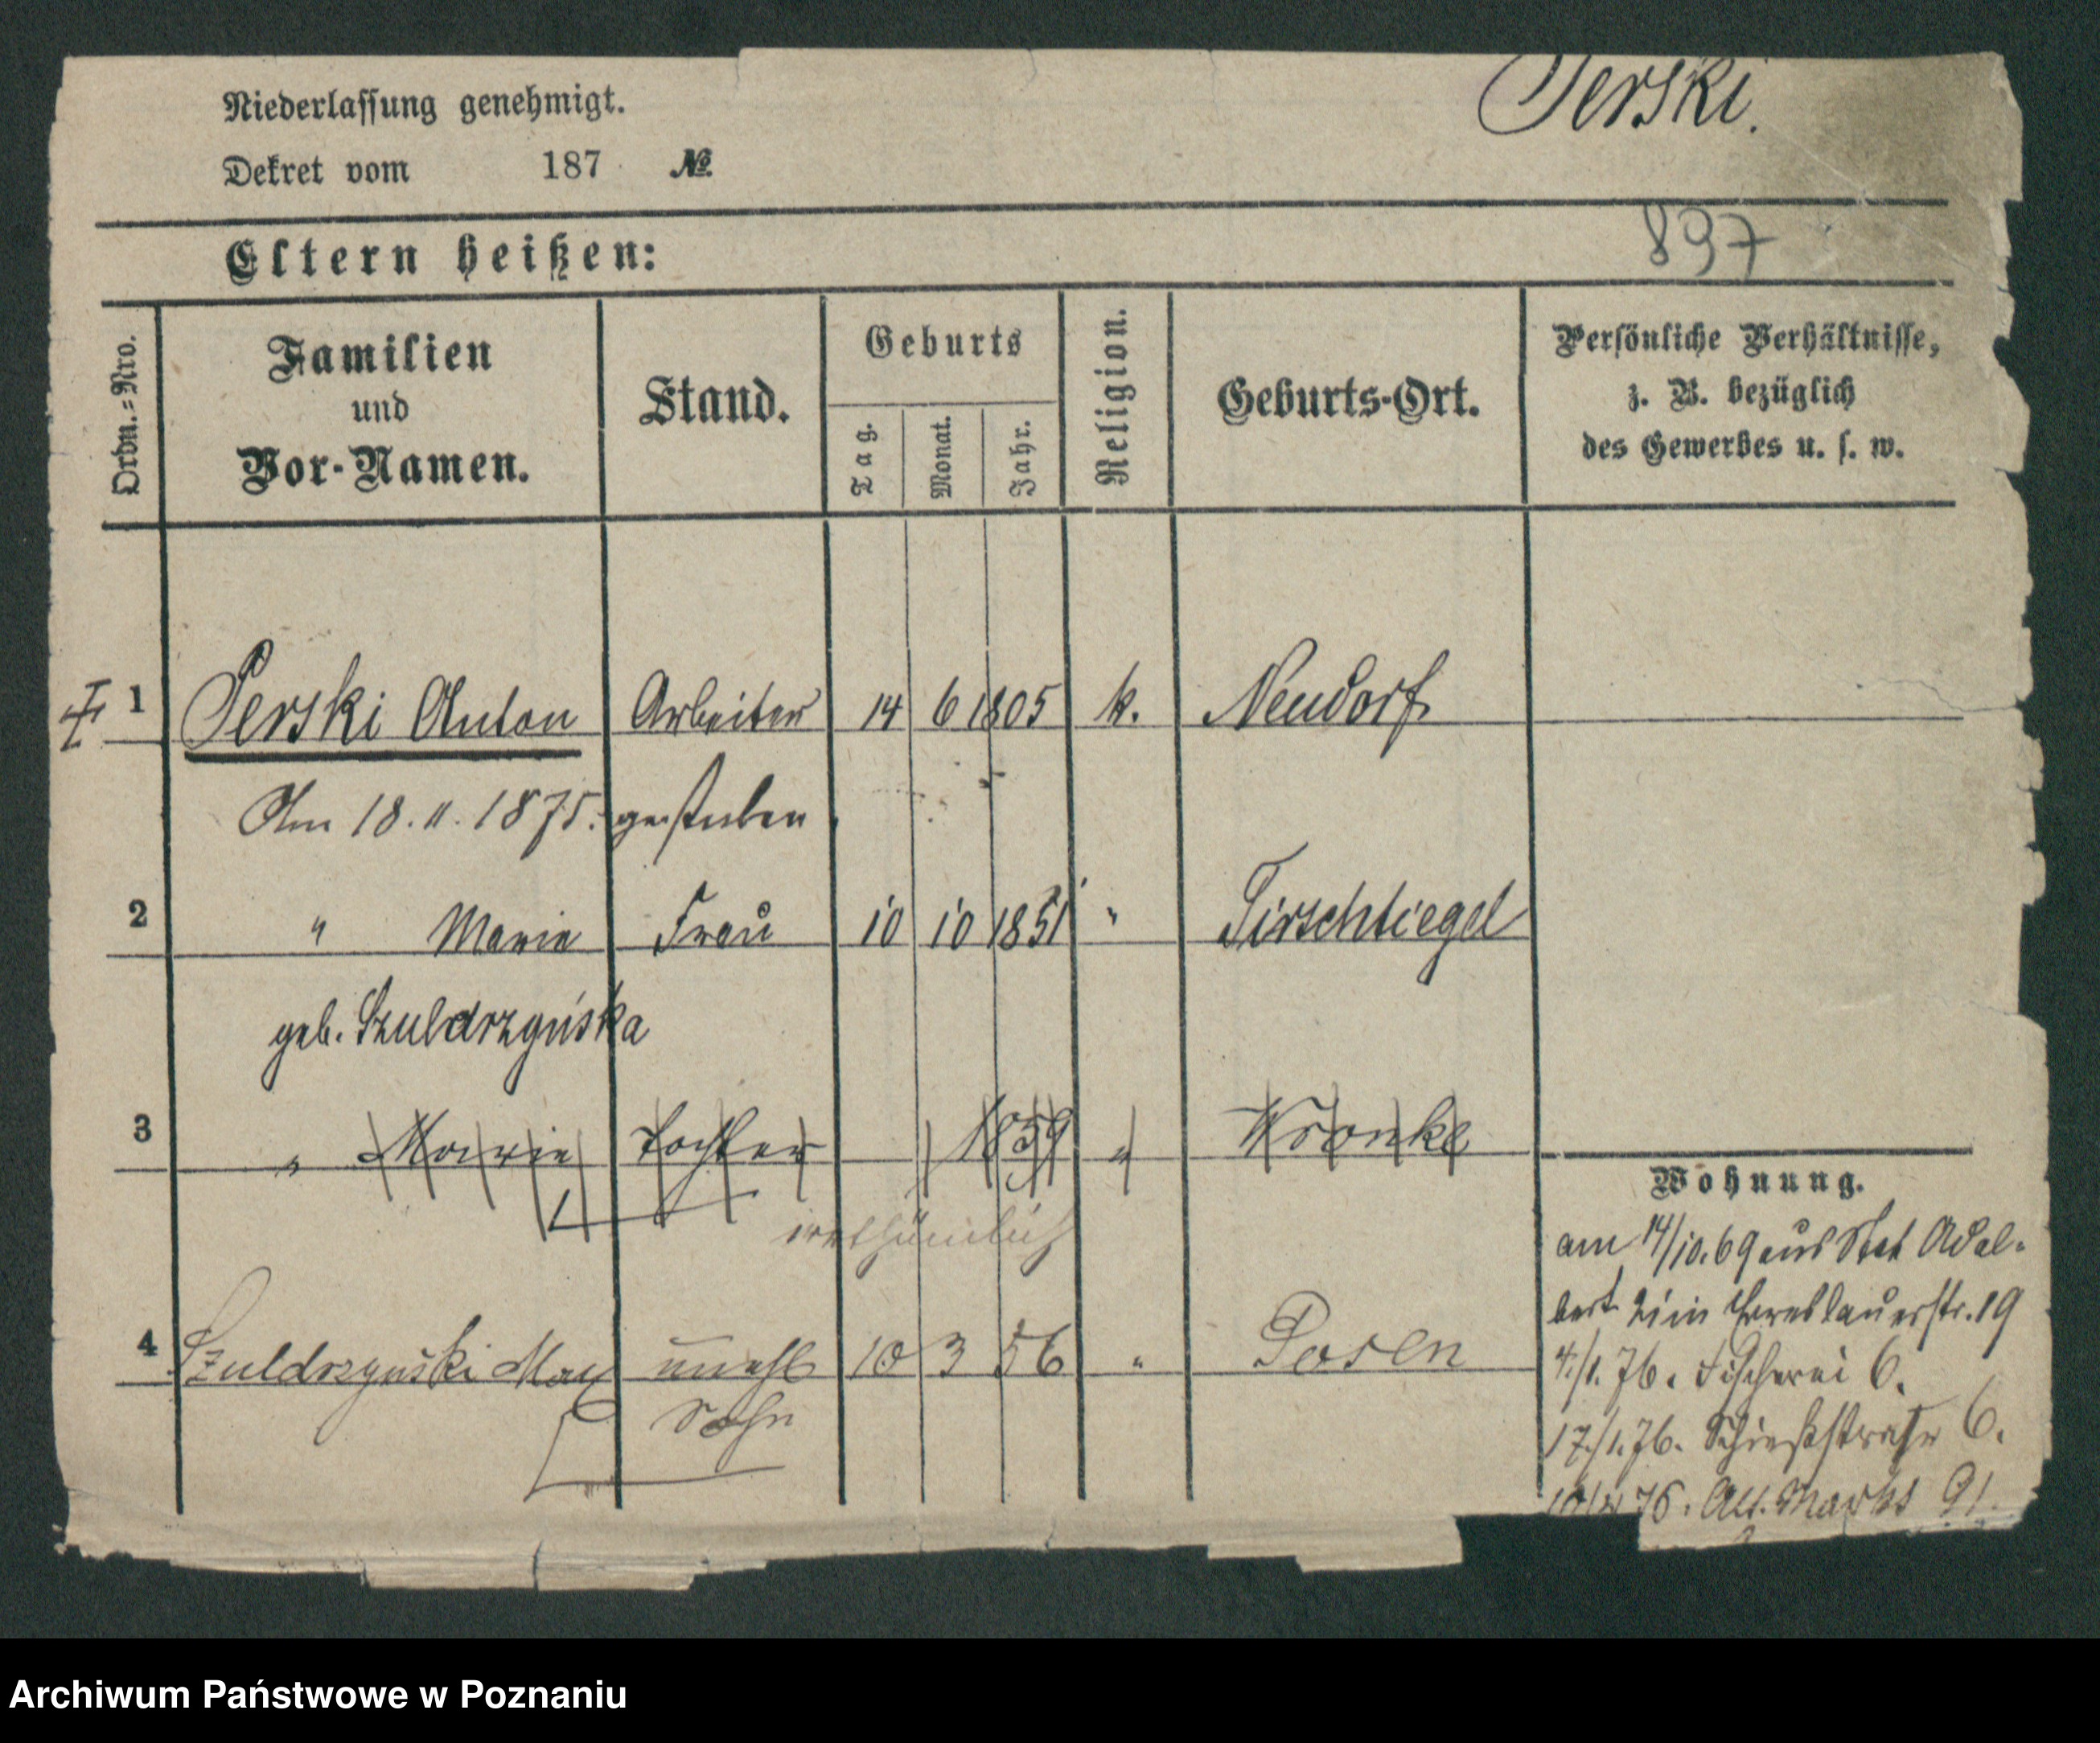 Perski.
Niederlassung genehmigt.
Dekret vom 187 No.
Eltern heißen:
897
Ordn.=Nro.
Familien und Vor-Namen.
Stand.
Geburts
Tag.
Monat.
Jahr.
Religion.
Geburts-Ort.
Persönliche Verhältnisse,
z. B. bezüglich
des Gewerbes u. s. w.
1 Perski Anton Arbeiter 14 6 1805 k. Neudorf
Am 18. 11. 1875. gestorben
2 " Marie Frau 10 10 1851 " Tirschtiegel
geb. Szuldrzyńska
3 " Marie Tochter 1859 " Wronke
irrthümlich
4 Szuldrzyński Max unehl 10 3 56 " Posen
Sohn
Wohnung.
am 14/10.69 aus Skt Adal-
bert 2 in Breslauerstr. 19
4./1. 76. Fischerei 6.
17./1.76. Schießstraße 6.
76. Alt. Markt 91.
Archiwum Państwowe w Poznaniu